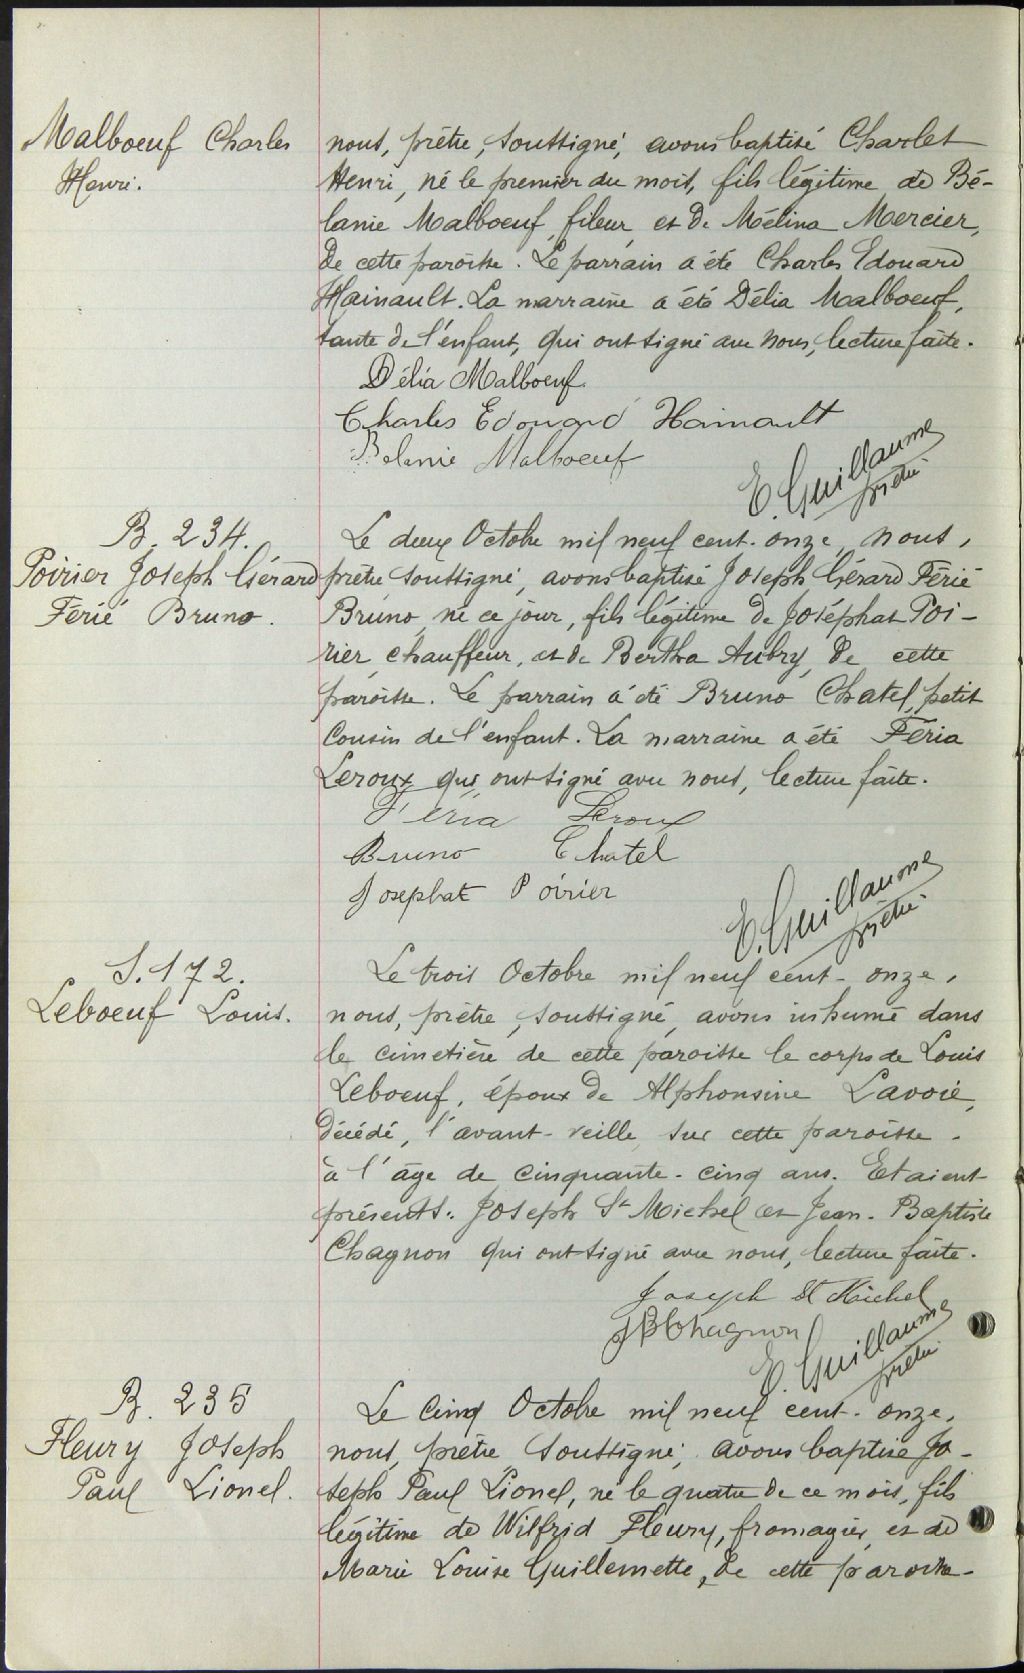 Malboeuf Charles
Henri.
nous, prêtre, soussigné, avons baptisé Charles
Henri, né le premier du mois, fils légitime de Bé-
lanie Malboeuf, fileur, et de Mélina Mercier,
de cette paroisse. Le parrain a été Charles Edouard
Hainault. La marraine a été Délia Malboeuf,
tante de l'enfant, qui ont signé avec nous, lecture faite.
Délia Malboeuf.
Charles Edouard Hainault
Belanie Malboeuf
E. Guillaume
prêtre
B. 234.
Poirier Joseph Gérard
Férié Bruno.
Le deux Octobre mil neuf cent-onze, nous,
prêtre soussigné, avons baptisé Joseph Gérard Férié
Bruno, né ce jour, fils légitime de Joséphat Poi-
rier, chauffeur, et de Bertha Aubry, de cette
paroisse. Le parrain a été Bruno Chatel, petit
cousin de l'enfant. La marraine a été Féria
Leroux qui ont signé avec nous, lecture faite.
Féria Leroux
Bruno Chatel
Josephat Poirier
E. Guillaume
prêtre
S. 172.
Leboeuf Louis.
Le trois Octobre mil neuf cent-onze,
nous, prêtre, soussigné, avons inhumé dans
le cimetière de cette paroisse le corps de Louis
Leboeuf, époux de Alphonsine Lavoie,
décédé, l'avant-veille, sur cette paroisse.
à l'âge de cinquante-cinq ans. Etaient
présents: Joseph St Michel et Jean-Baptiste
Chagnon qui ont signé avec nous, lecture faite.
Joseph St Michel
JB Chagnon
E. Guillaume
prêtre
B. 235
Fleury Joseph
Paul Lionel.
Le cinq Octobre mil neuf cent-onze,
nous, prêtre soussigné, avons baptisé Jo-
seph Paul Lionel, né le quatre de ce mois, fils
légitime de Wilfrid Fleury, fromagier, et de
Marie Louise Guillemette, de cette paroisse.